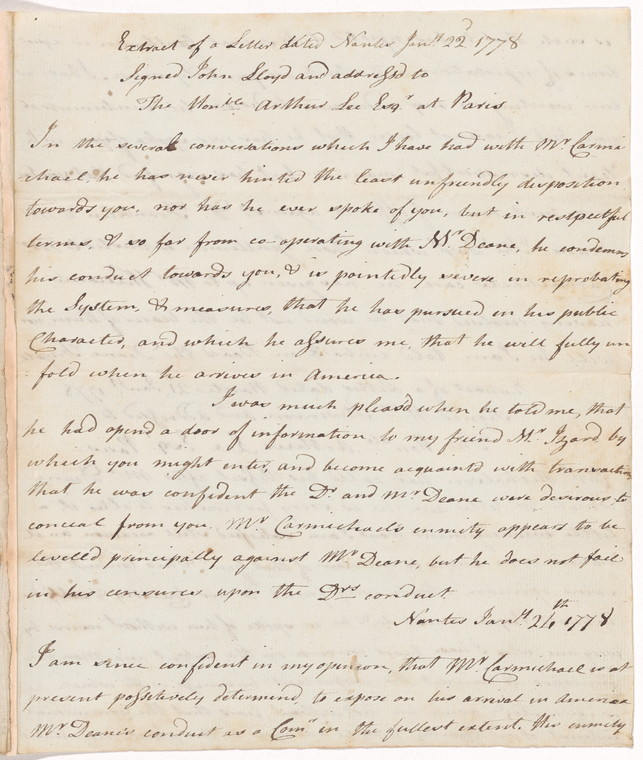 Extract of a Letter dated Nantes Jany. 22d 1778
Signed John Lloyd and address'd to
The Honble Arthur Lee Esqr at Paris
In the several conversations which I have had with Mr Carmi
chael, he has never hinted the least unfriendly disposition
towards you, nor has he ever spoke of you, but in respectful
terms, & so far from co-operating with Mr Deane, he condemns
his conduct towards you, & is pointedly severe in reprobating
the System, & measures, that he has pursued in his public
Character, and which he assures me, that he will fully un
fold when he arrives in America.
I was much pleas'd when he told me, that
he had opend a door of information to my friend Mr Izard by
which you might enter, and become acquainted with transactions
that he was confident the Dr and Mr Deane were desirous to
conceal from you. Mr Carmichaels enmity appears to be
levelled principally against Mr Deane, but he does not fail
in his censures upon the Drs conduct.
Nantes Jany 24th 1778
I am since confident in my opinion, that Mr Carmichael is at
present possitively determind, to expose on his arrival in America
Mr Deane's conduct as a Comr in the fullest extent. His enmity